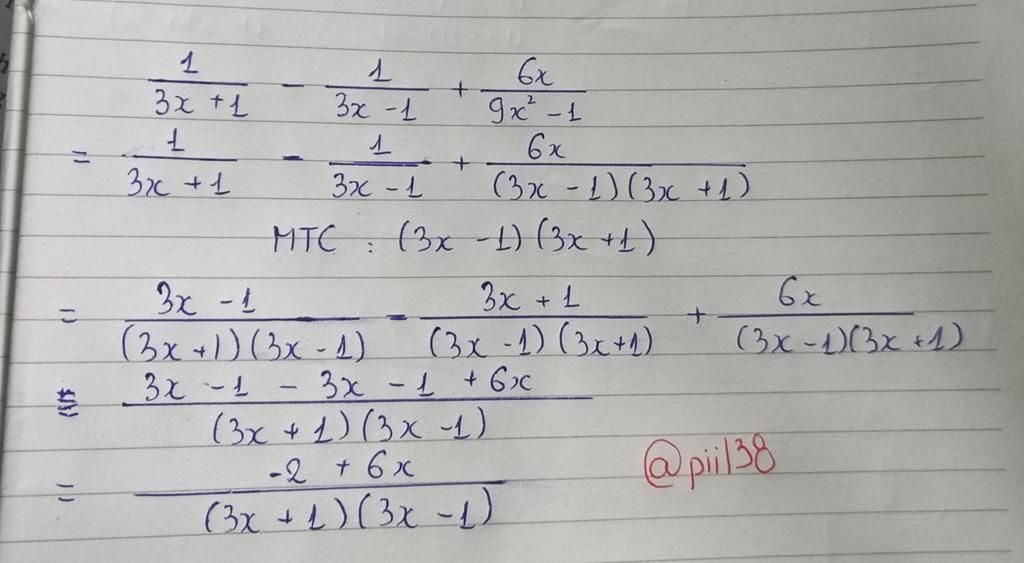 1/(3x + 1) - 1/(3x - 1) + 6x/(9x² - 1)
= 1/(3x + 1) - 1/(3x - 1) + 6x/((3x - 1)(3x + 1))
MTC : (3x - 1)(3x + 1)
= (3x - 1)/((3x + 1)(3x - 1)) - (3x + 1)/((3x - 1)(3x + 1)) + 6x/((3x - 1)(3x + 1))
= (3x - 1 - 3x - 1 + 6x)/((3x + 1)(3x - 1))
= (-2 + 6x)/((3x + 1)(3x - 1))
@pii138